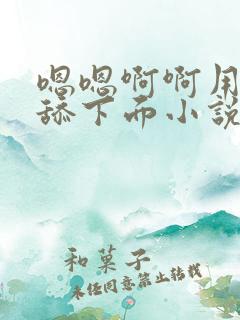 嗯嗯啊啊用
舔下面小說
和菓子
未经同意禁止转载